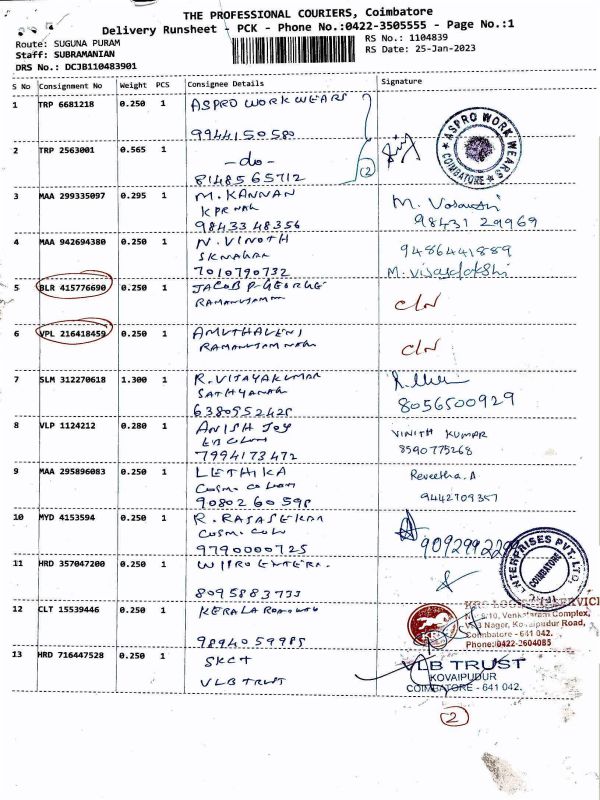 THE PROFESSIONAL COURIERS, Coimbatore
Delivery Runsheet - PCK - Phone No.:0422-3505555 - Page No.:1
Route: SUGUNA PURAM
Staff: SUBRAMANIAN
DRS No.: DCJB110483901
RS No.: 1104839
RS Date: 25-Jan-2023
S No Consignment No Weight PCS Consignee Details Signature
1 TRP 6681218 0.250 1 ASPRO WORK WEARS
9944150580
2 TRP 2563001 0.565 1 -do-
8148565712
(2)
ASPRO WORK WEARS
COIMBATORE
3 MAA 299335097 0.295 1 M. KANNAN
KPR NAG
98433 48356
M. Vasanthi
98431 29969
4 MAA 942694380 0.250 1 N. VINOTH
SK NAGAR
7010790732
9486441889
M. Vijayalakshi
5 BLR 415776690 0.250 1 JACOB P. GEORGE
C/N
6 VPL 216418459 0.250 1 AMUTHAVENI
C/N
7 SLM 312270618 1.300 1 R. VIJAYAKUMAR
6380552425
8056500929
8 VLP 1124212 0.280 1 ANISH JOY
EB COLONY
7994173472
VINITH KUMAR
8590775268
9 MAA 295896083 0.250 1 LETHIKA
9080260598
Reveetha.A
9442709357
10 MYD 4153594 0.250 1 R. RAJASEKAR
9790000725
9092992299
11 HRD 357047200 0.250 1 WIPRO ENTERP.
8095883733
ENTERPRISES PVT. LTD.
COIMBATORE
12 CLT 15539446 0.250 1 KERALA ROADWAYS
9894059985
Complex,
Nagar, Kovaipudur Road,
Coimbatore - 641 042.
Phone:0422-2604085
13 HRD 716447528 0.250 1 SKCT
VLB TRUST
VLB TRUST
KOVAIPUDUR
COIMBATORE - 641 042.
(2)